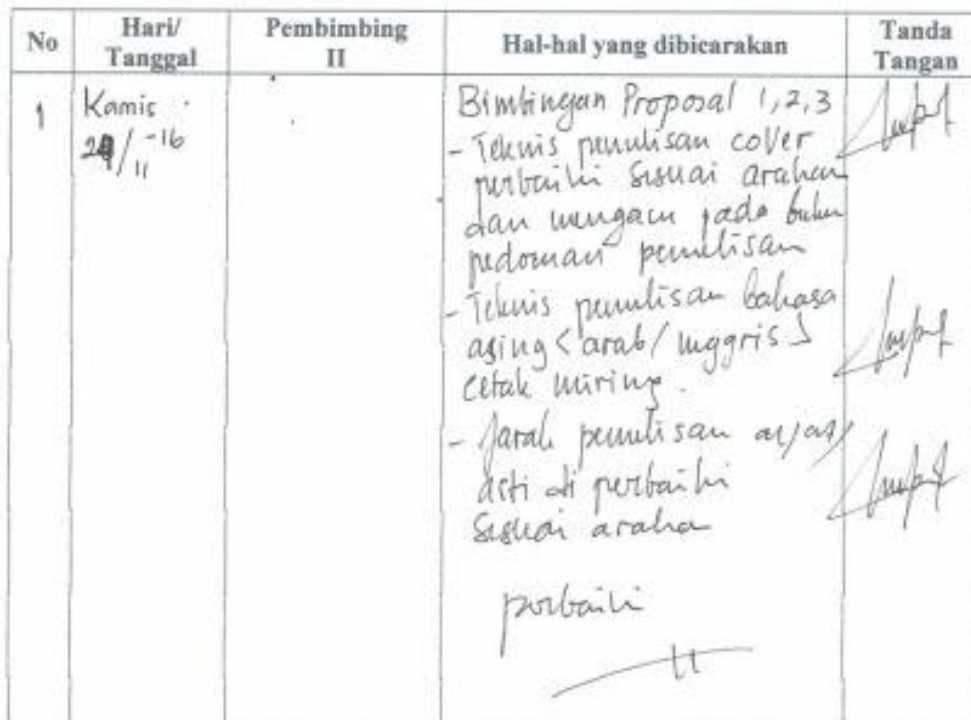 No
Hari/
Tanggal
Pembimbing
II
Hal-hal yang dibicarakan
Tanda
Tangan
1
Kamis
/11 -16
Bimbingan Proposal 1,2,3
- Teknis penulisan cover
perbaiki sesuai arahan
dan mengacu pada buku
pedoman penulisan
- Teknis penulisan bahasa
asing < arab / Inggris >
cetak miring.
- Jarak penulisan
di perbaiki
sesuai araha
perbaiki